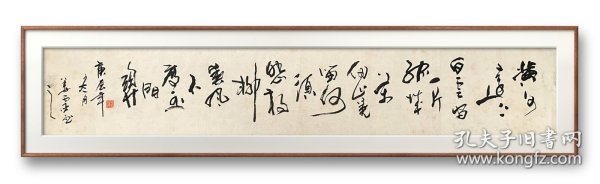 黄河
远上
白云间
一片
孤城
万
仞山羌
笛何
须
怨杨
柳
春风
不
度玉
门
关
庚辰年
孔夫子旧书网
www.kongfz.com